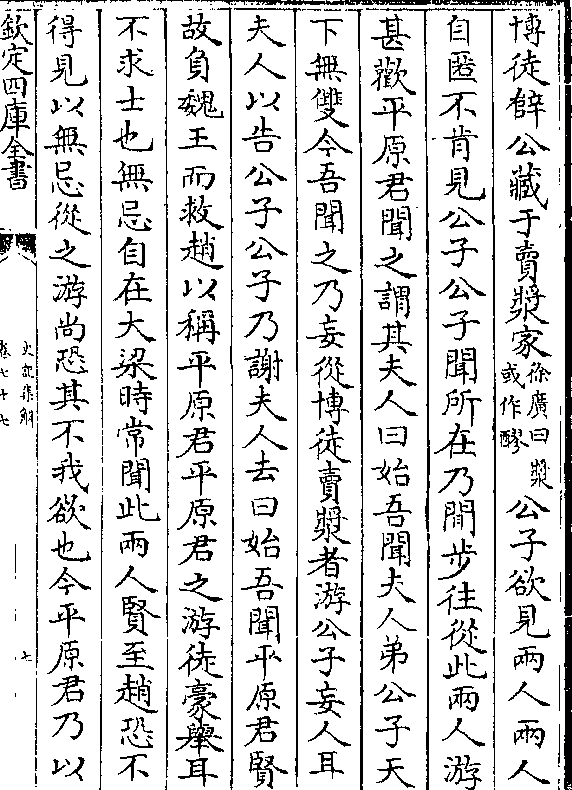 博徒薛公藏于賣漿家徐廣曰漿或作醪公子欲見兩人兩人
自匿不肯見公子公子聞所在乃間步往從此兩人游
甚歡平原君聞之謂其夫人曰始吾聞夫人弟公子天
下無雙今吾聞之乃妄從博徒賣漿者游公子妄人耳
夫人以告公子公子乃謝夫人去曰始吾聞平原君賢
故負魏王而救趙以稱平原君平原君之游徒豪舉耳
不求士也無忌自在大梁時常聞此兩人賢至趙恐不
得見以無忌從之游尚恐其不我欲也今平原君乃以
欽定四庫全書
史記集解
卷七十七
七